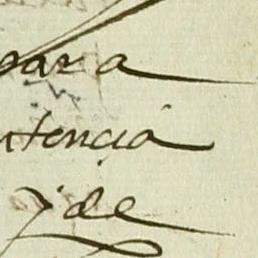 para
utencia
y de